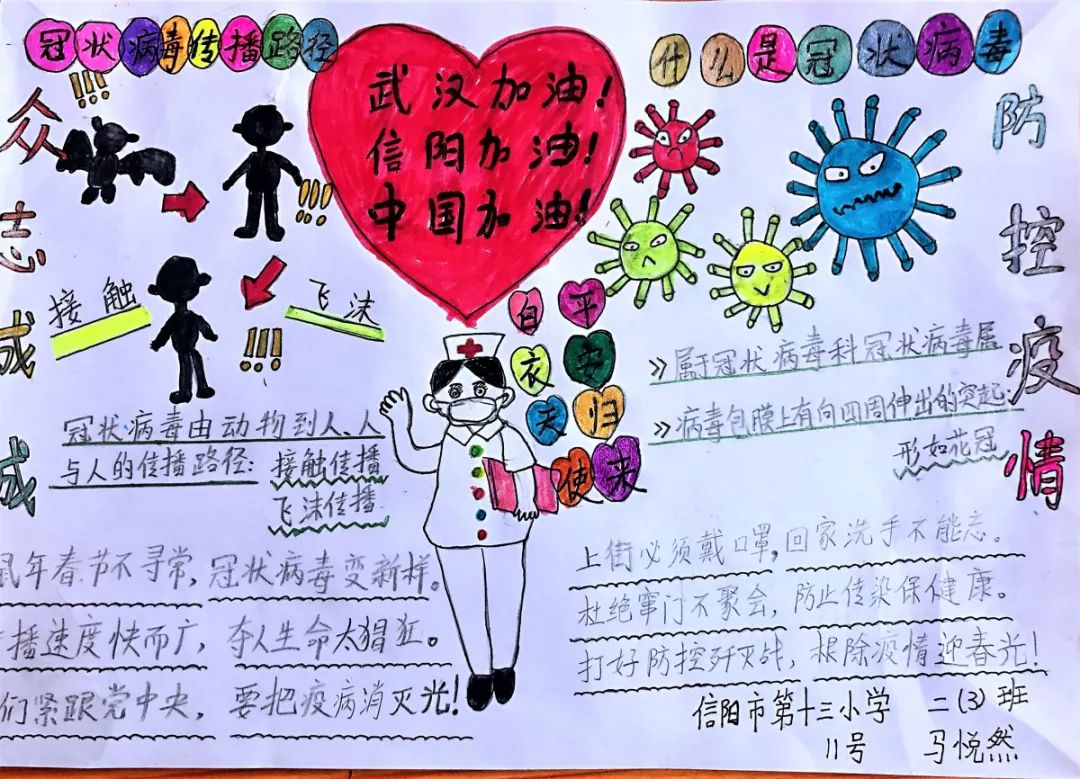 冠状病毒传播路径
!!!
众志成成
武汉加油!
信阳加油!
中国加油!!
什么是冠状病毒
防控疫情
!!!
接触
飞沫
!!!
白衣天使
平安归来
冠状病毒由动物到人、人
与人的传播路径:接触传播
飞沫传播
》属于冠状病毒科冠状病毒属
》病毒包膜上有向四周伸出的突起,
形如花冠
鼠年春节不寻常,冠状病毒变新样。
播速度快而广,夺人生命太猖狂。
们紧跟党中央,要把疫病消灭光!
上街必须戴口罩,回家洗手不能忘。
杜绝窜门不聚会,防止传染保健康。
打好防控歼灭战,根除疫情迎春光!
信阳市第十三小学 二(3)班
11号 马悦然